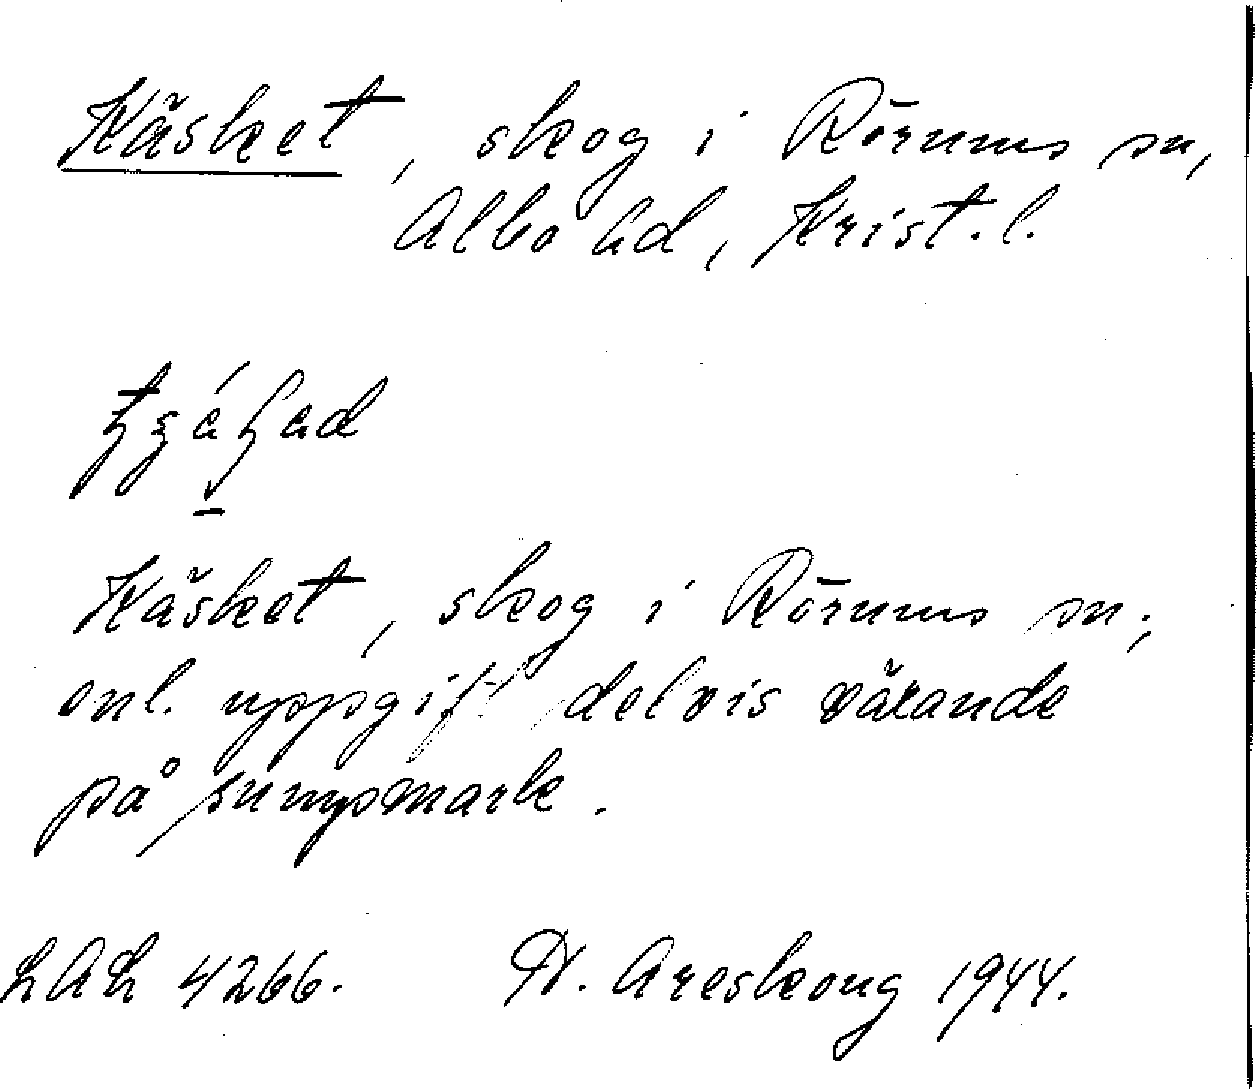 Käsket, skog i Rörums sn,
Albo hd, Krist. l.
Käsket, skog i Rörums sn;
enl. uppgift delvis växande
på sumpmark.
LAL 4266. Areskoug 1944.